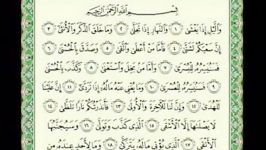 بِسْمِ اللَّهِ الرَّحْمَٰنِ الرَّحِيمِ
وَاللَّيْلِ إِذَا يَغْشَىٰ ١ وَالنَّهَارِ إِذَا تَجَلَّىٰ ٢ وَمَا خَلَقَ الذَّكَرَ وَالْأُنثَىٰ ٣
إِنَّ سَعْيَكُمْ لَشَتَّىٰ ٤ فَأَمَّا مَنْ أَعْطَىٰ وَاتَّقَىٰ ٥ وَصَدَّقَ بِالْحُسْنَىٰ
٦ فَسَنُيَسِّرُهُ لِلْيُسْرَىٰ ٧ وَأَمَّا مَن بَخِلَ وَاسْتَغْنَىٰ ٨ وَكَذَّبَ بِالْحُسْنَىٰ
٩ فَسَنُيَسِّرُهُ لِلْعُسْرَىٰ ١٠ وَمَا يُغْنِي عَنْهُ مَالُهُ إِذَا تَرَدَّىٰ ١١ إِنَّ عَلَيْنَا
لَلْهُدَىٰ ١٢ وَإِنَّ لَنَا لَلْآخِرَةَ وَالْأُولَىٰ ١٣ فَأَنذَرْتُكُمْ نَارًا تَلَظَّىٰ ١٤
لَا يَصْلَاهَا إِلَّا الْأَشْقَى ١٥ الَّذِي كَذَّبَ وَتَوَلَّىٰ ١٦ وَسَيُجَنَّبُهَا
الْأَتْقَى ١٧ الَّذِي يُؤْتِي مَالَهُ يَتَزَكَّىٰ ١٨ وَمَا لِأَحَدٍ عِندَهُ مِن